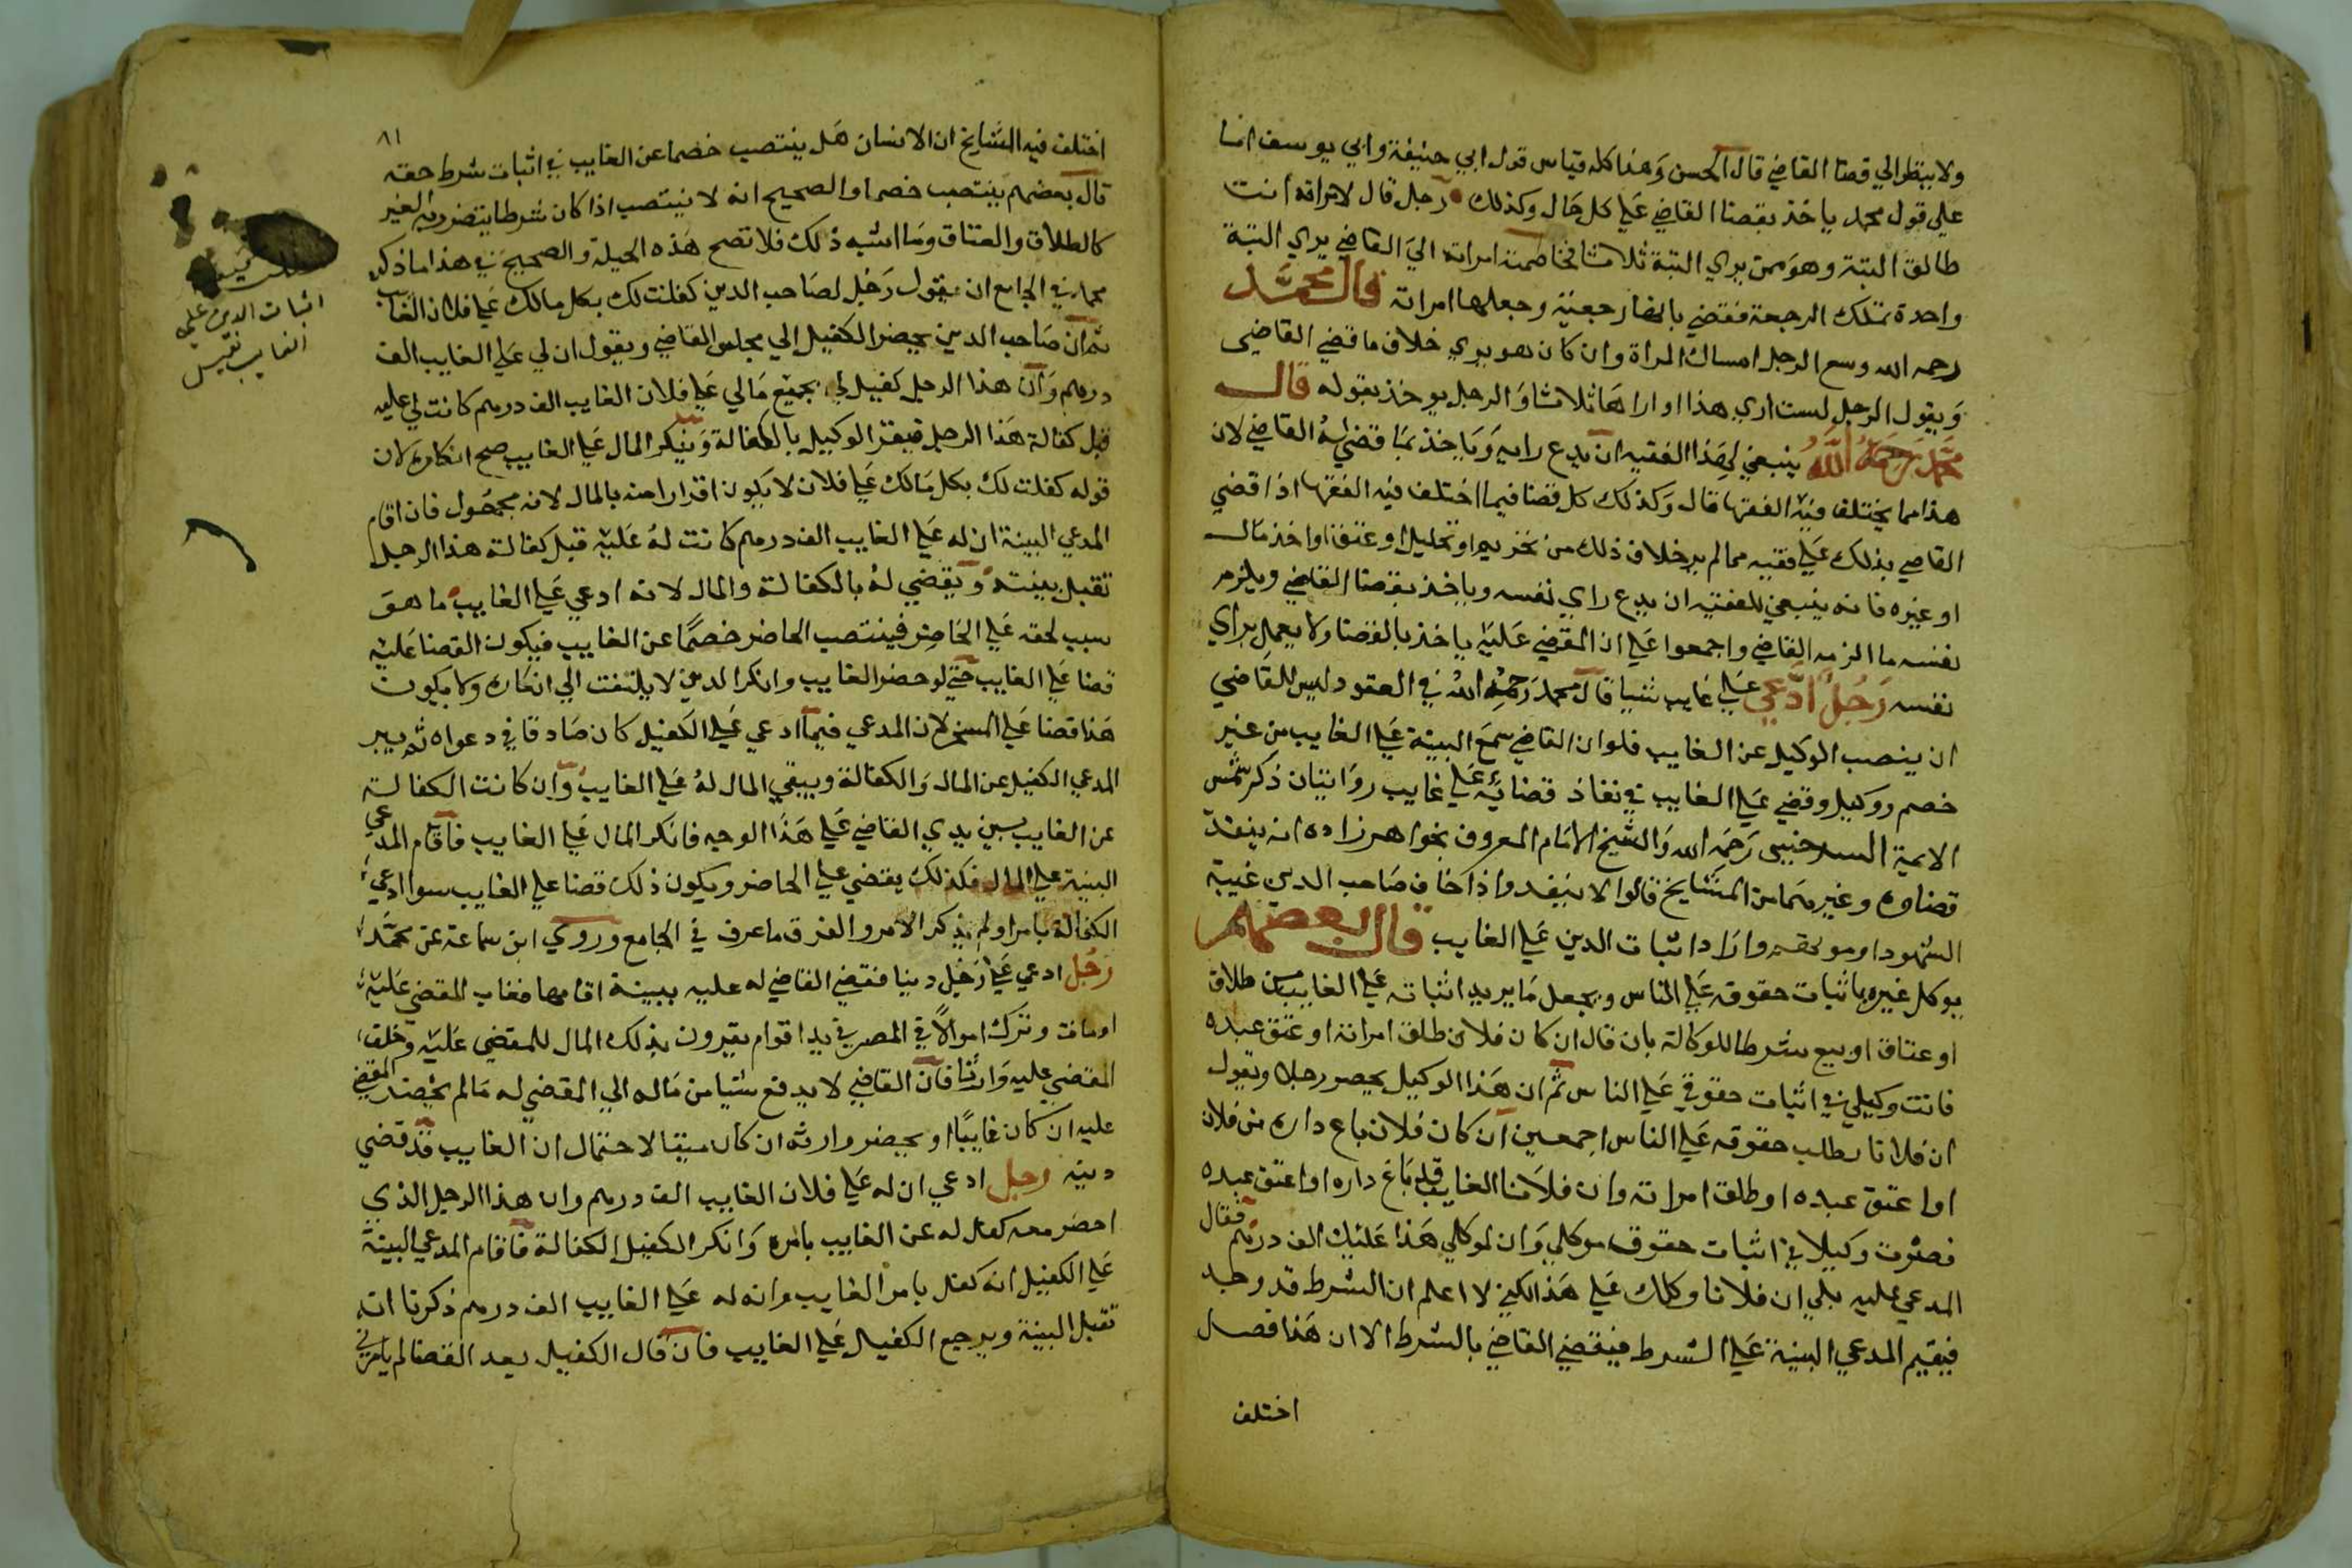 ولا ينظر الي قضا القاضي قال الحسن وهذا كله قياس قول ابي حنيفة وابي يوسف اما
علي قول محمد ياخذ بقضا القاضي علي كل حال وكذلك رجل قال لامراته انت
طالق البتة وهو ممن يري البتة ثلاثا فخاصمته امراته الي القاضي يري البتة
واحدة تملك الرجعة فقضي بانها رجعية وجعلها امراته قال محمد
رحمه الله وسع الرجل امساك المراة وان كان هو يري خلاف ما قضي القاضي
ويقول الرجل لست اري هذا او اراها ثلاثا والرجل يوخذ بقوله قال
محمد رحمه الله ينبغي لهذا الفقيه ان يدع رايه وياخذ بما قضي له القاضي لان
هذا مما يختلف فيه الفقها قال وكذلك كل قضا فيما اختلف فيه الفقها اذا قضي
القاضي بذلك علي فقيه مما لم ير خلاف ذلك من تحريم او تحليل او عتق او اخذ مال
او غيره فانه ينبغي للفقيه ان يدع راي نفسه وياخذ بقضا القاضي ويلزم
نفسه ما الزمه القاضي واجمعوا علي ان المقضي عليه ياخذ بالقضا ولا يعمل براي
نفسه رجل ادعي علي غايب شيا قال محمد رحمه الله في العقود ليس للقاضي
ان ينصب الوكيل عن الغايب فلو ان القاضي سمع البينة علي الغايب من غير
خصم ووكيل وقضي علي الغايب في نفاذ قضائه علي غايب روايتان ذكر شمس
الايمة السرخسي رحمه الله والشيخ الامام المعروف بخواهرزاده انه ينفذ
قضاوه وغيرهما من المشايخ قالوا لا ينفد واذا خاف صاحب الدين غيبة
الشهود او موتهم واراد اثبات الدين علي الغايب قال بعضهم
يوكل غيره باثبات حقوقه علي الناس ويجعل ما يريد اثباته علي الغايب من طلاق
او عتاق او بيع شرطا للوكالة بان قال ان كان فلان طلق امراته او عتق عبده
فانت وكيلي في اثبات حقوقي علي الناس ثم ان هذا الوكيل يحضر رجلا ويقول
ان فلانا يطلب حقوقه علي الناس اجمعين ان كان فلان باع داره من فلان
او اعتق عبده او طلق امراته وان فلانا الغايب قد باع داره او اعتق عبده
فصرت وكيلا في اثبات حقوق موكلي وان لموكلي هذا عليك الف درهم فقال
المدعي عليه بلي ان فلانا وكلك علي هذا لكني لا اعلم ان الشرط قد وجد
فيقيم المدعي البينة علي الشرط فيقضي القاضي بالشرط الا ان هذا فصل
اختلف
٨١
اختلف فيه المشايخ ان الانسان هل ينتصب خصما عن الغايب في اثبات شرط حقه
قال بعضهم ينتصب خصما والصحيح انه لا ينتصب اذا كان شرطا يتضرر به الغير
كالطلاق والعتاق وما اشبه ذلك فلا تصح هذه الحيلة والصحيح في هذا ما ذكر
محمد في الجامع ان يقول رجل لصاحب الدين كفلت لك بكل مالك علي فلان الغايب
ثم ان صاحب الدين يحضر الكفيل الي مجلس القاضي ويقول ان لي علي الغايب الف
درهم وان هذا الرجل كفيل لي بجميع مالي علي فلان الغايب الف درهم كانت لي عليه
قبل كفالة هذا الرجل فيقر الوكيل بالكفالة وينكر المال علي الغايب صح انكاره لان
قوله كفلت لك بكل مالك علي فلان لا يكون اقرارا منه بالمال لانه مجهول فان اقام
المدعي البينة ان له علي الغايب الف درهم كانت له عليه قبل كفالة هذا الرجل
تقبل بينته ويقضي له بالكفالة والمال لانه ادعي علي الغايب ما هو
سبب لحقه علي الحاضر فينتصب الحاضر خصما عن الغايب فيكون القضا عليه
قضا علي الغايب حتي لو حضر الغايب وانكر الدين لا يلتفت الي انكاره ولا يكون
هذا قضا علي المسخر لان المدعي فيما ادعي علي الكفيل كان صادقا في دعواه ثم يبر
المدعي الكفيل عن المال والكفالة ويبقي المال له علي الغايب وان كانت الكفالة
عن الغايب بين يدي القاضي علي هذا الوجه فانكر المال علي الغايب فاقام المدعي
البينة علي المال فكذلك يقضي علي الحاضر ويكون ذلك قضا علي الغايب سوا ادعي
الكفالة بامر او لم يذكر الامر والفرق ما عرف في الجامع وروي ابن سماعة عن محمد
رجل ادعي علي رجل دينا فقضي القاضي له عليه ببينة اقامها فغاب المقضي عليه
او مات وترك اموالا في المصر في يد اقوام يقرون بذلك المال للمقضي عليه وخلف
المقضي عليه وارثا فان القاضي لا يدفع شيا من ماله الي المقضي له مالم يحضر المقضي
عليه ان كان غايبا او يحضر وارثه ان كان ميتا لاحتمال ان الغايب قد قضي
دينه رجل ادعي ان له علي فلان الغايب الف درهم وان هذا الرجل الذي
احضر معه كفل له عن الغايب بامره وانكر الكفيل الكفالة فاقام المدعي البينة
علي الكفيل انه كفل بامر الغايب وانه له علي الغايب الف درهم ذكرنا انه
تقبل البينة ويرجع الكفيل علي الغايب فان قال الكفيل بعد القضا لم يامرني
اثبات الدين علي
الغايب نفيس